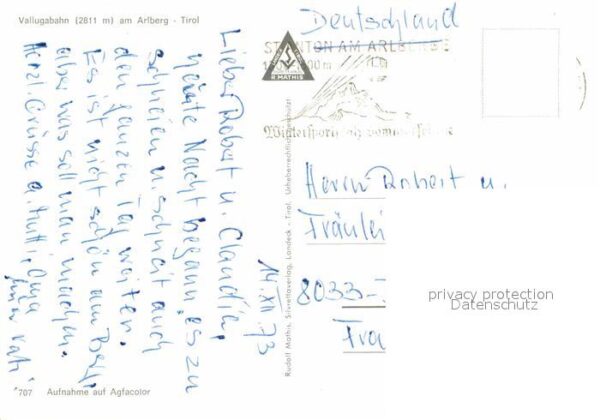 Vallugabahn (2811 m) am Arlberg - Tirol
14.XII.73
Lieber Robert u. Claudia,
heute Nacht begann es zu
schneien u. schneit auch
den ganzen Tag weiter.
Es ist nicht schön am Berg,
aber was soll man machen.
Herzl. Grüsse a. Mutti, Oma
"707 Aufnahme auf Agfacolor
Rudolf Mathis, Silvrettaverlag, Landeck - Tirol. Urheberrechtlich geschützt
R. MATHIS
Deutschland
ST. ANTON AM ARLBERG
Wintersport
Herrn Robert u.
Fräulei
8033-
Fra
privacy protection
Datenschutz